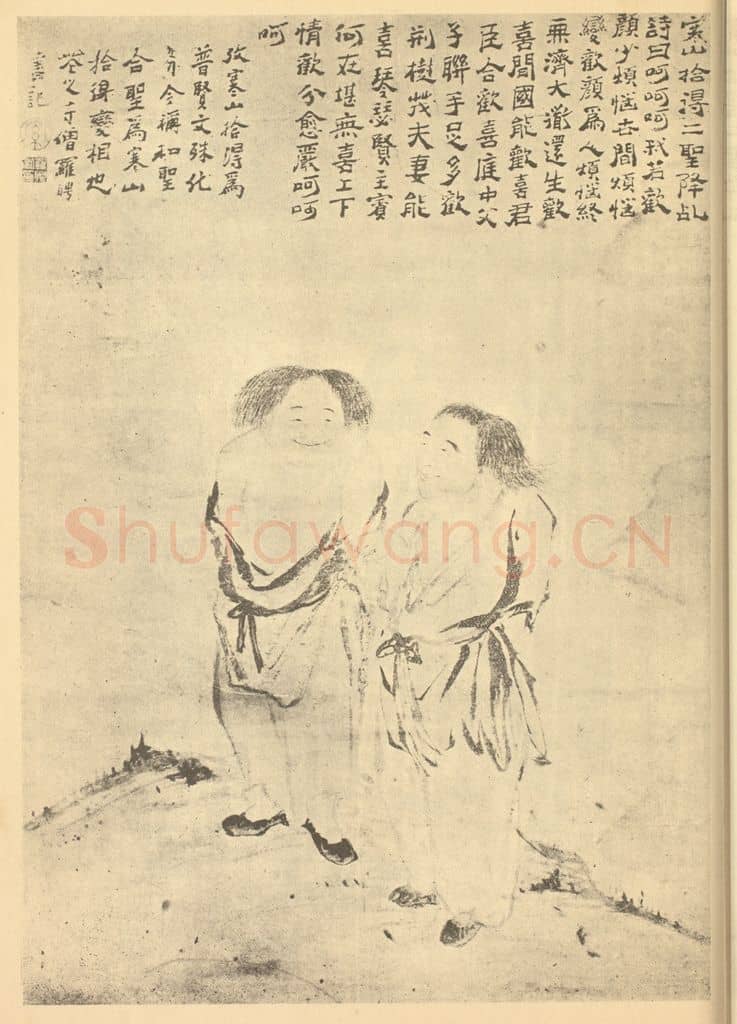 寒山拾得二聖降乩
詩曰呵呵呵我若歡
顏少煩惱世間煩惱
變歡顏爲人煩惱終
無濟大道還生歡
喜間國能歡喜君
臣合歡喜庭中父
子聯手足多歡
荆樹茂夫妻能
喜琴瑟賢主賓
何在堪無喜上下
情歡分愈嚴呵呵
呵
攷寒山拾得爲
普賢文殊化
身今稱和聖
合聖爲寒山
拾得變相也
花之寺僧羅聘
書記
Shufawang.CN